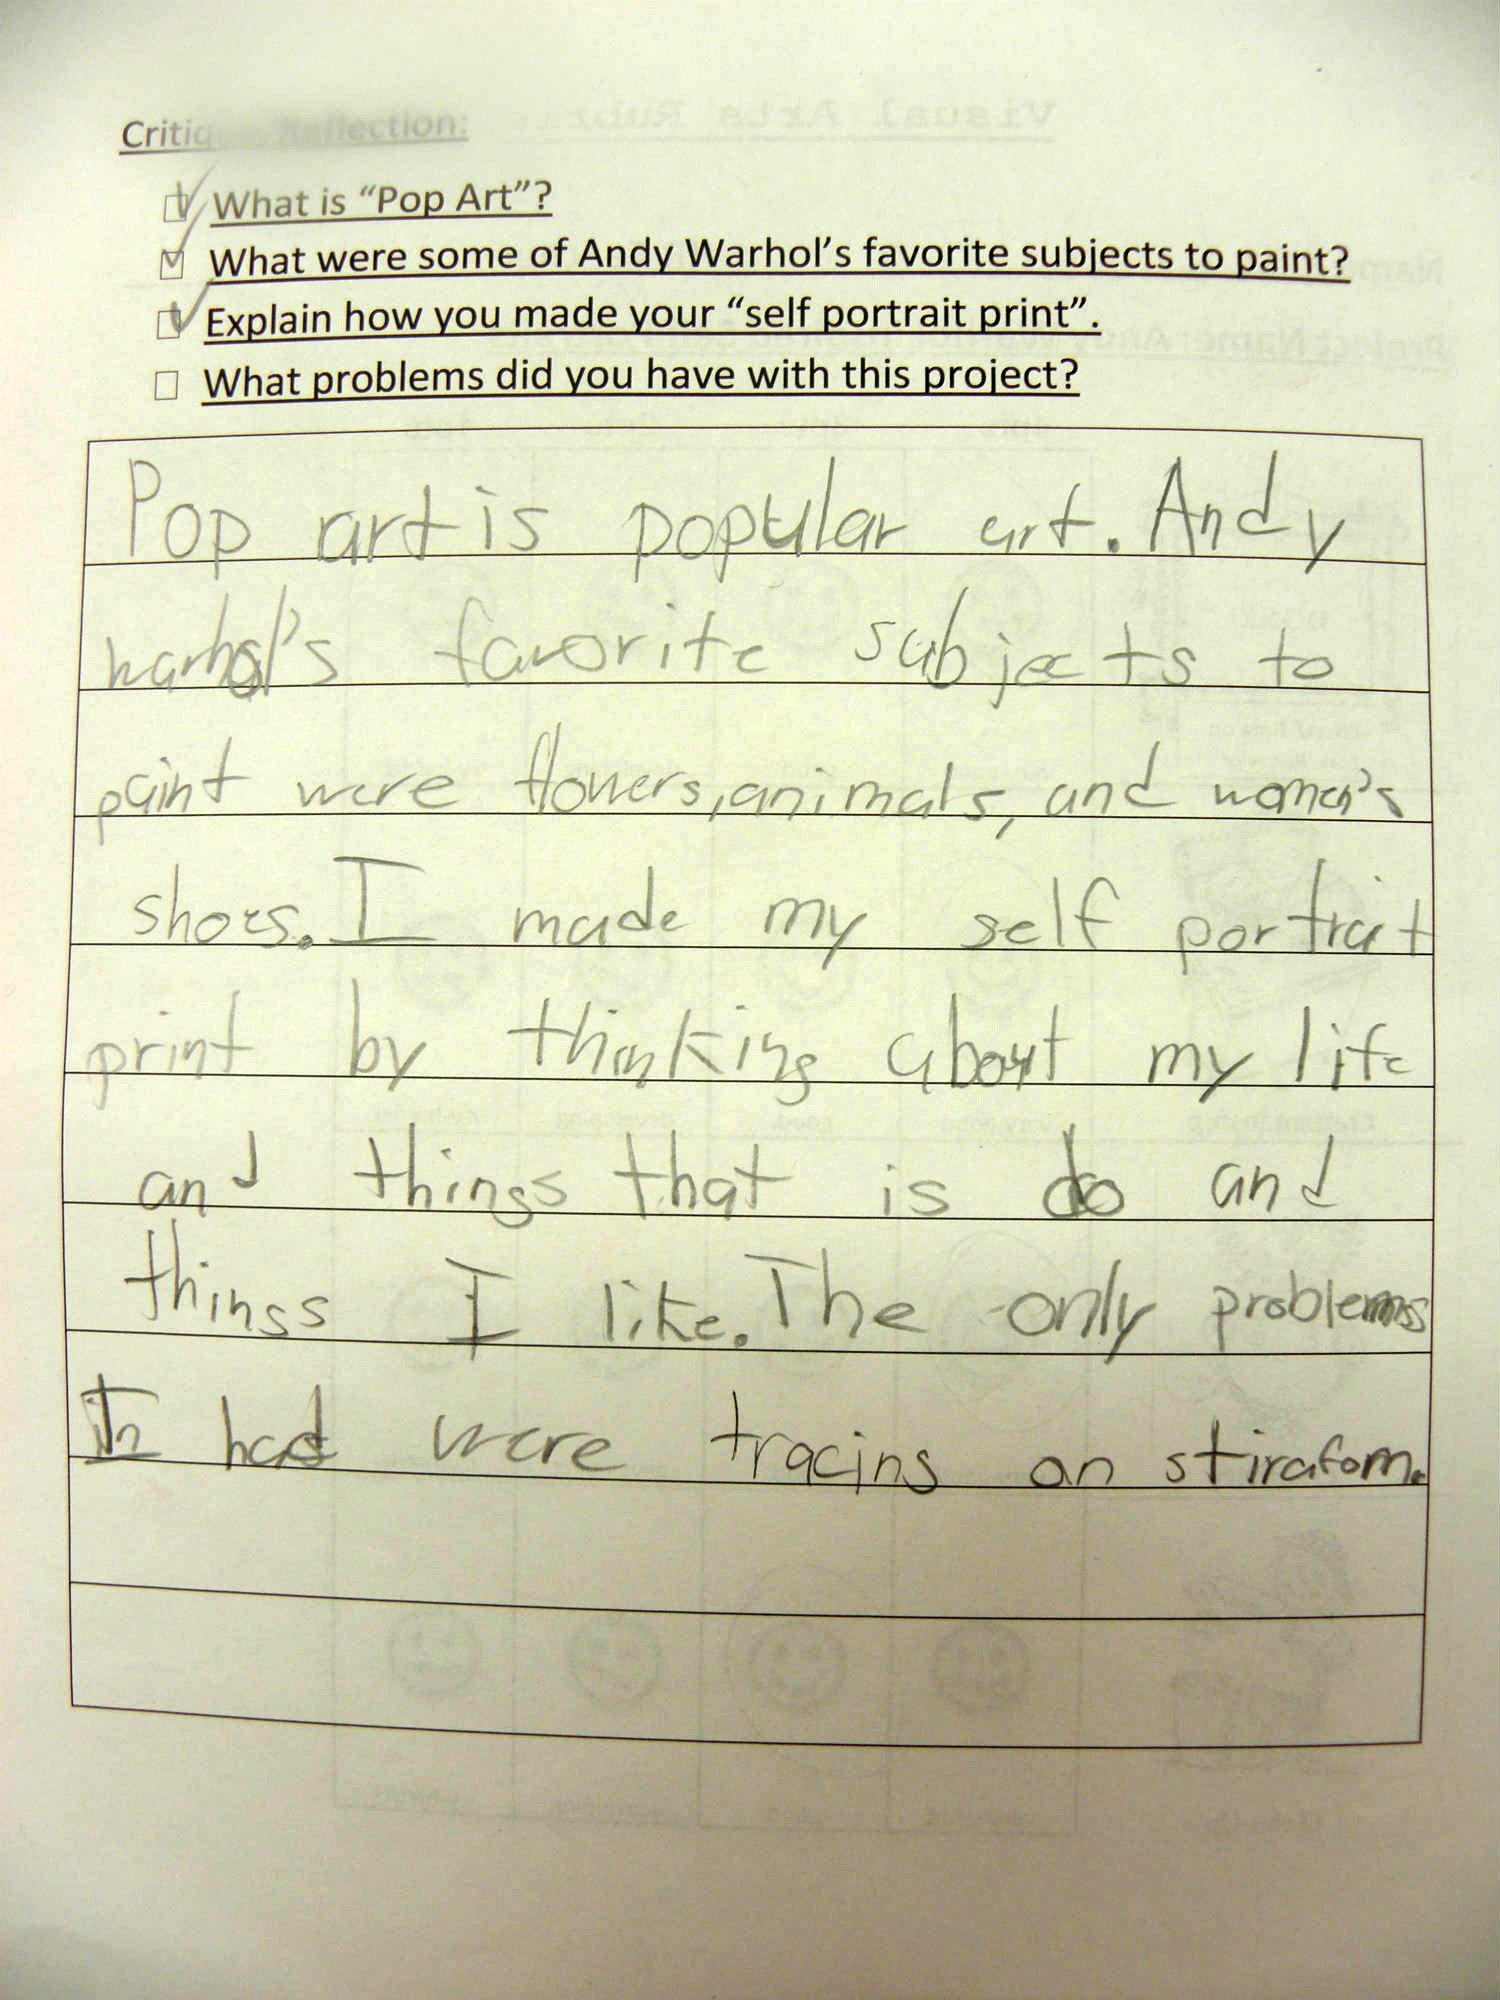 Critique Reflection:
What is “Pop Art”?
What were some of Andy Warhol’s favorite subjects to paint?
Explain how you made your “self portrait print”.
What problems did you have with this project?
Pop art is popular art. Andy
warhol's favorite subjects to
paint were flowers, animals, and women's
shoes. I made my self portrait
print by thinking about my life
and things that is do and
things I like. The only problems
I had were tracing on stirafom.